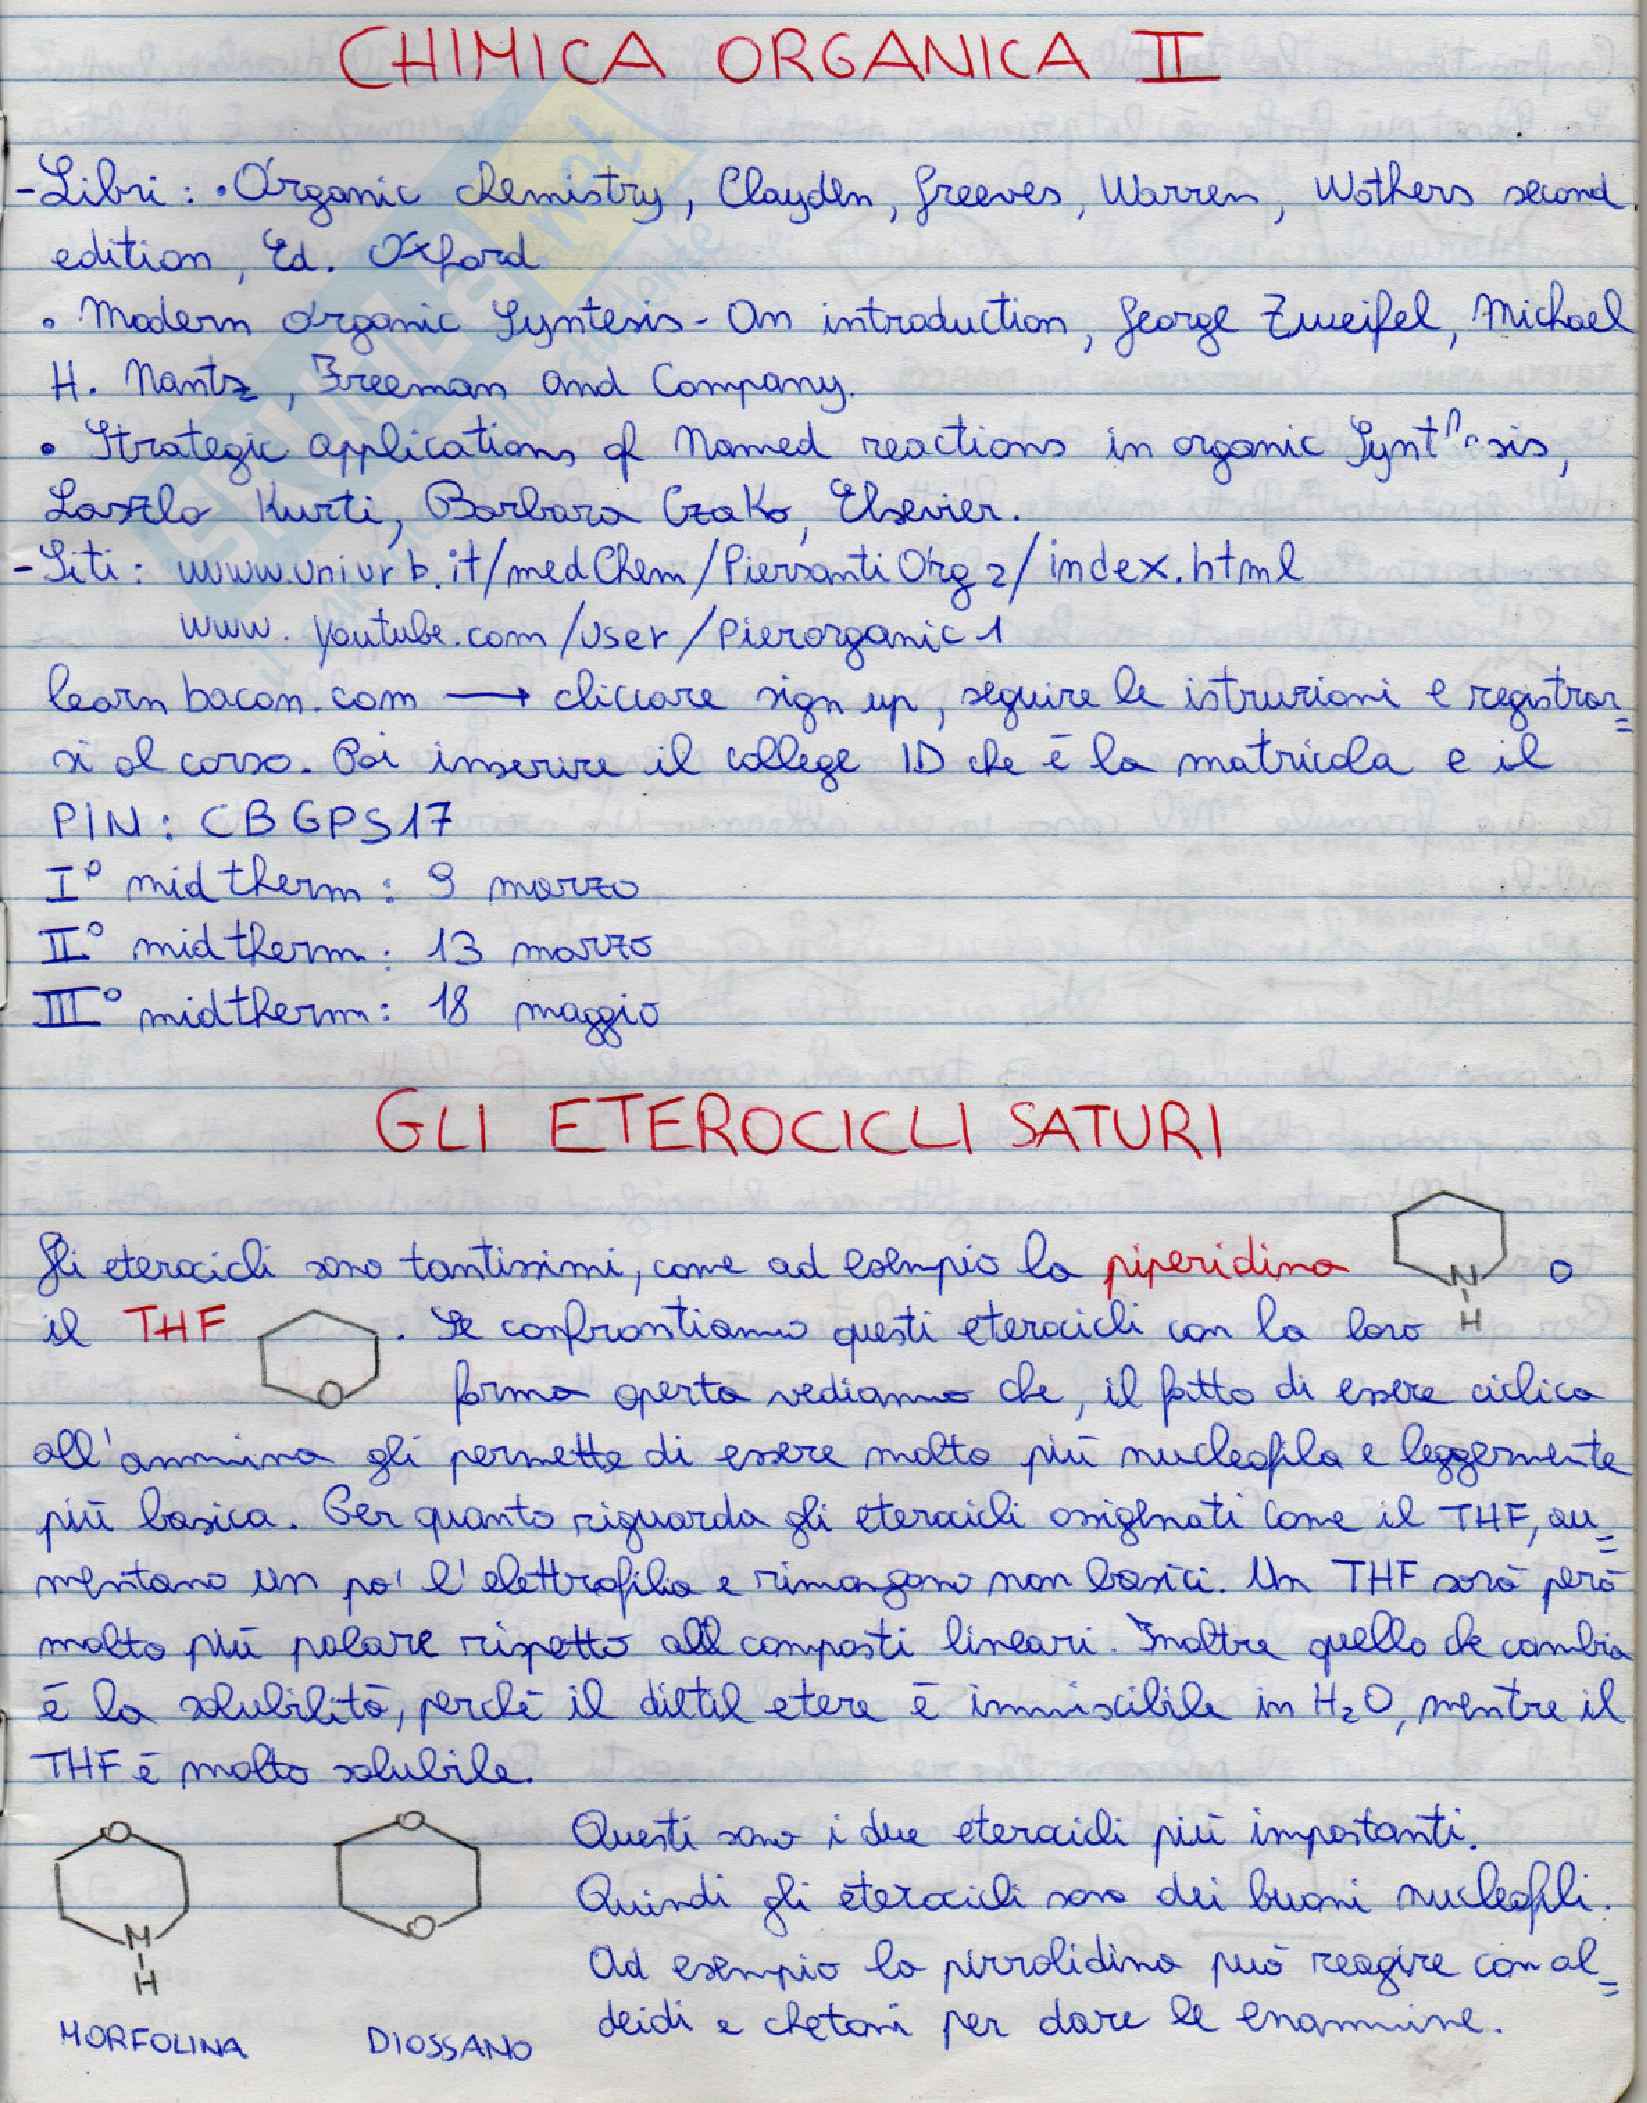 CHIMICA ORGANICA II
- Libri: • Organic chemistry, Clayden, Greeves, Warren, Wothers second
edition, Ed. Oxford
• Modern organic Syntesis - An introduction, George Zweifel, Michael
H. Nantz, Freeman and Company.
• Strategic applications of Named reactions in organic Synthesis,
Laszlo Kurti, Barbara Czako, Elsevier.
- Siti: www.uniurb.it/medChem/PiersantiOrg2/index.html
www.youtube.com/user/Pierorganic1
learnbacon.com → cliccare sign up, seguire le istruzioni e registrar=
si al corso. Poi inserire il college ID che è la matricola e il
PIN: CBGPS17
I° midtherm: 9 marzo
II° midtherm: 13 marzo
III° midtherm: 18 maggio
GLI ETEROCICLI SATURI
Gli eterocicli sono tantissimi, come ad esempio la piperidina N H o
il THF O . Se confrontiamo questi eterocicli con la loro
forma aperta vediamo che, il fatto di essere ciclica
all'ammina gli permette di essere molto più nucleofila e leggermente
più basica. Per quanto riguarda gli eterocicli ossigenati come il THF, au=
mentano un po' l'elettrofilia e rimangono non basici. Un THF sarà però
molto più polare rispetto all composti lineari. Inoltre quello che cambia
è la solubilità, perchè il dietil etere è immiscibile in H2O, mentre il
THF è molto solubile.
O N H
O O
MORFOLINA DIOSSANO
Questi sono i due eterocicli più importanti.
Quindi gli eterocicli sono dei buoni nucleofili.
Ad esempio la pirrolidina può reagire con al=
deidi e chetoni per dare le enammine.
SKUOLA.net